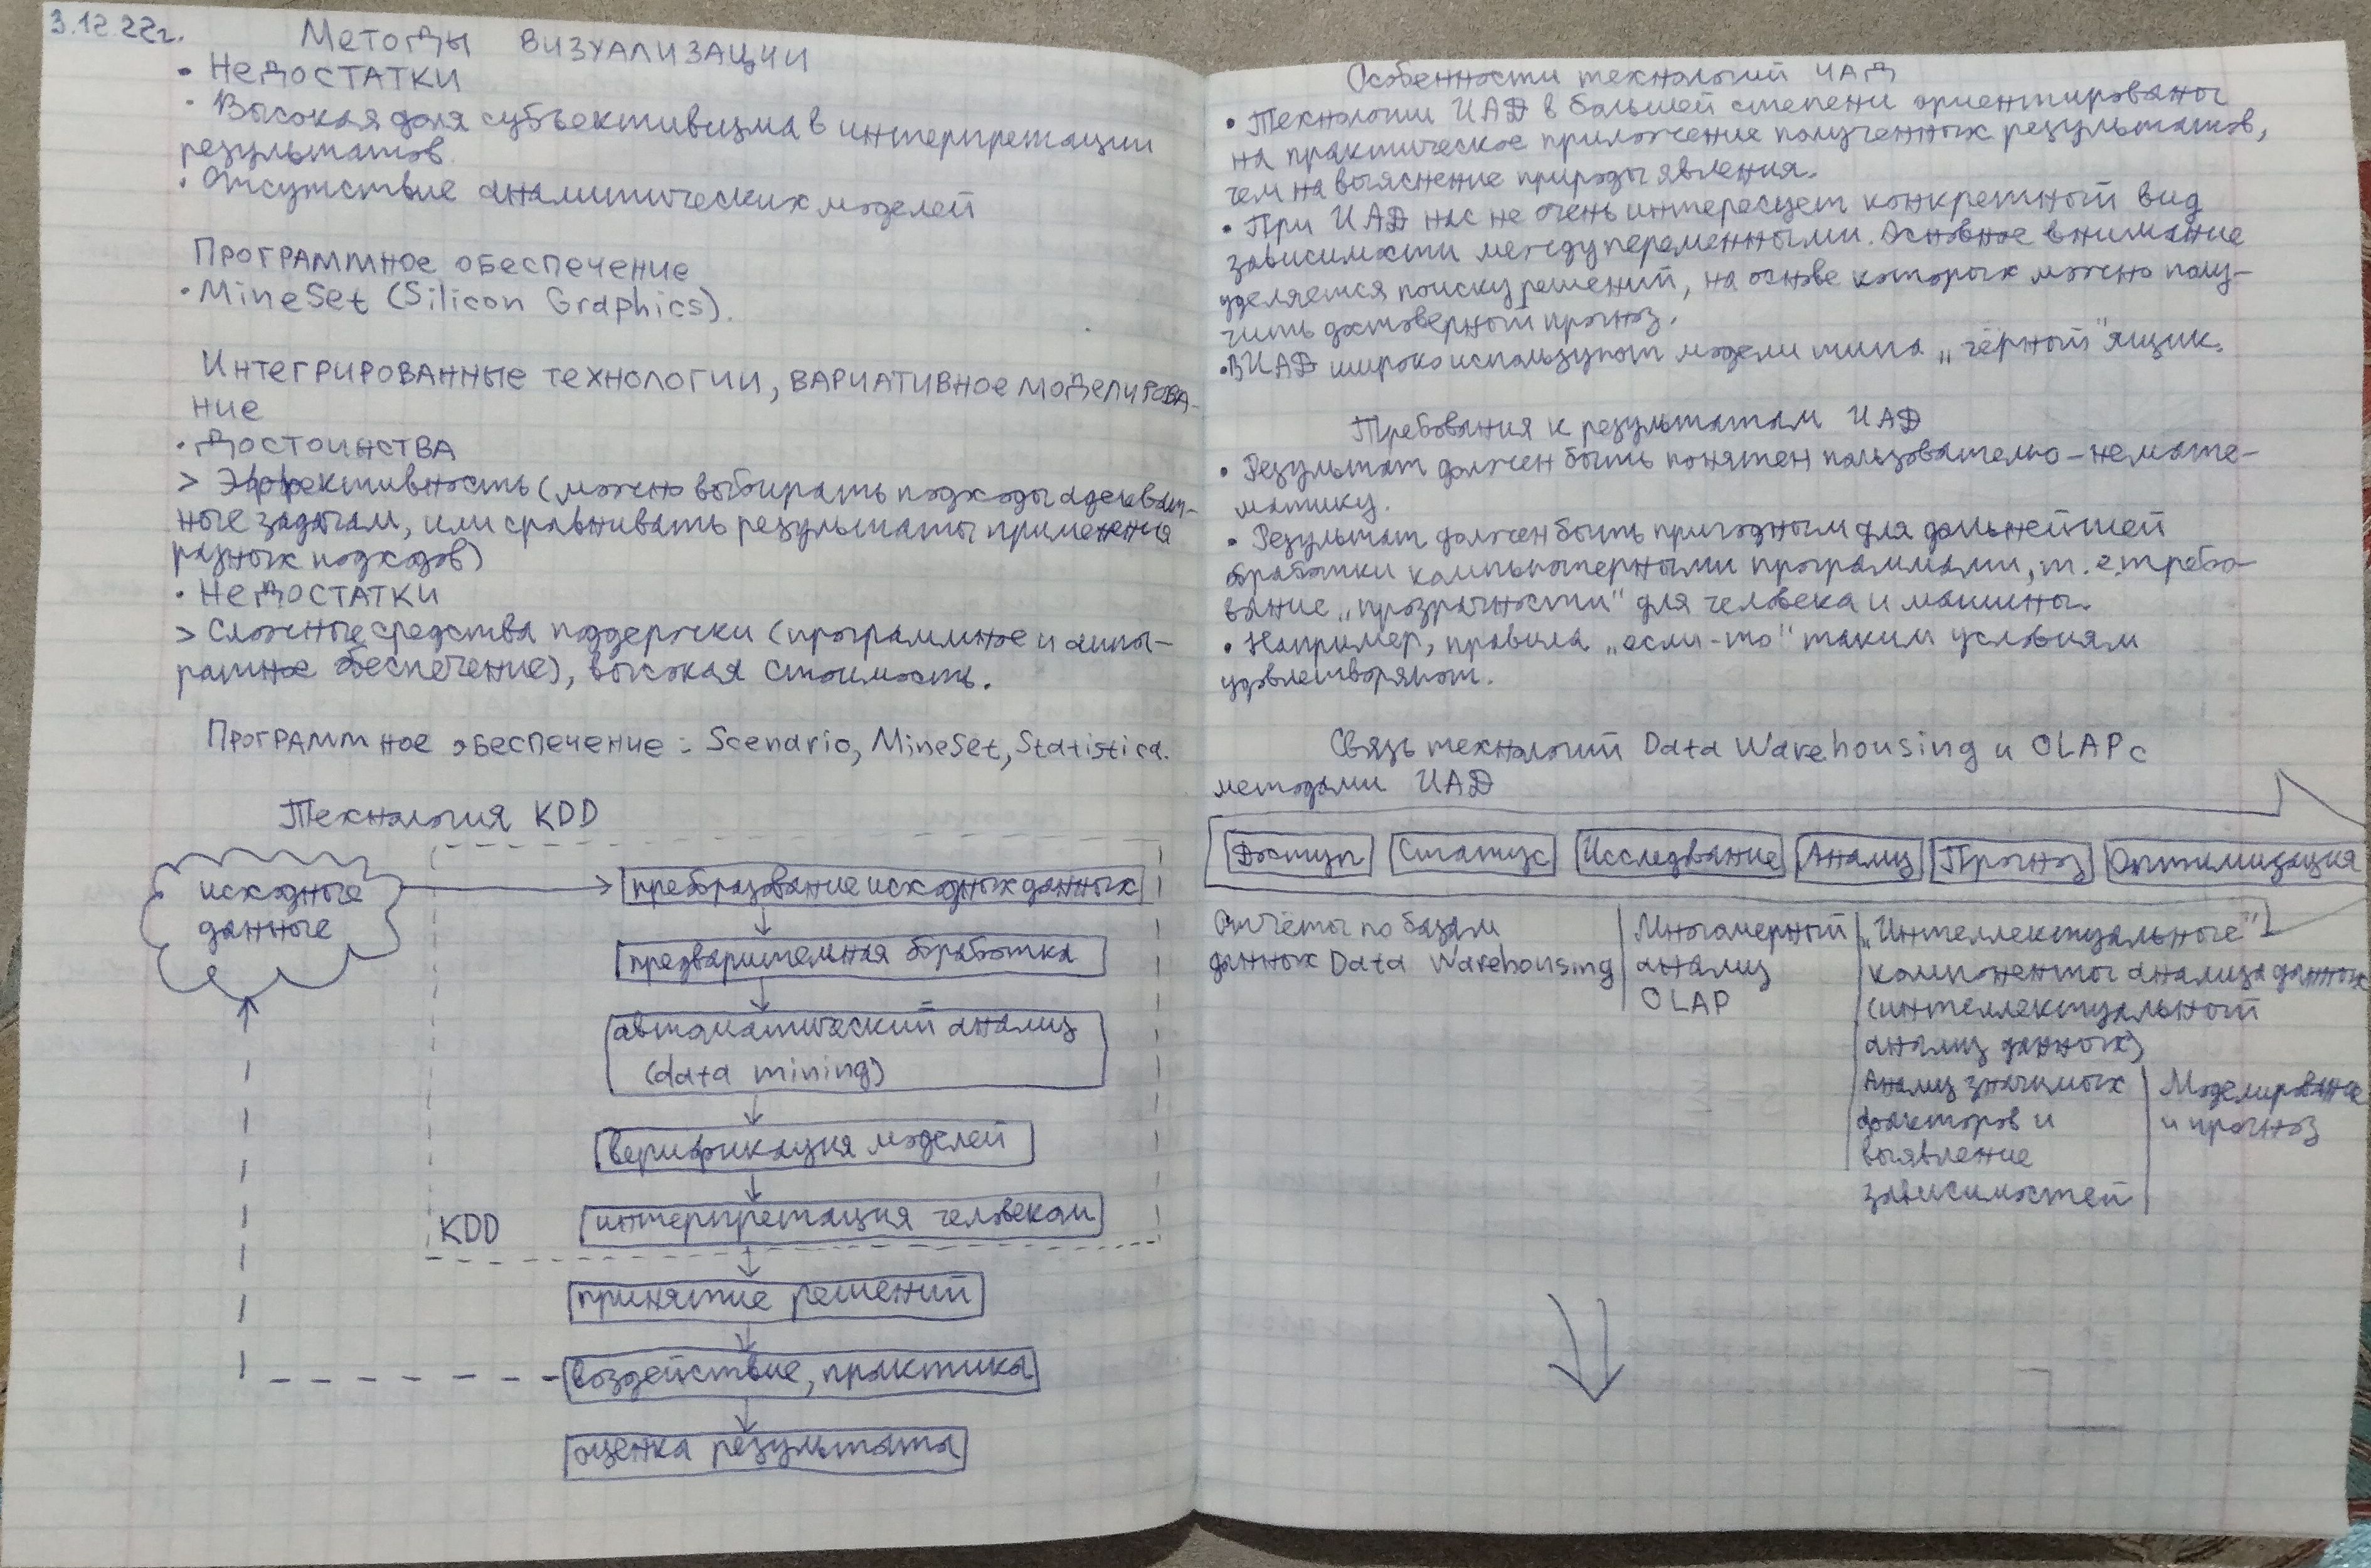 3.12.22г.
Методы визуализации
• Недостатки
• Высокая доля субъективизма в интерпретации
результатов.
• Отсутствие аналитических моделей
Программное обеспечение
• MineSet (Silicon Graphics).
Интегрированные технологии, вариативное моделирова-
ние
• Достоинства
> Эффективность (можно выбирать подходы адекват-
ные задачам, или сравнивать результаты применения
разных подходов)
• Недостатки
> Сложные средства поддержки (программное и аппа-
ратное обеспечение), высокая стоимость.
Программное обеспечение: Scenario, MineSet, Statistica.
Технология KDD
исходные
данные
преобразование исходных данных
предварительная обработка
автоматический анализ
(data mining)
верификация моделей
интерпретация человеком
KDD
принятие решений
воздействие, практика
оценка результата
Особенности технологий ИАД
• Технологии ИАД в большей степени ориентированы
на практическое приложение полученных результатов,
чем на выяснение природы явления.
• При ИАД нас не очень интересует конкретный вид
зависимости между переменными. Основное внимание
уделяется поиску решений, на основе которых можно полу-
чить достоверный прогноз.
• В ИАД широко используют модели типа „чёрный" ящик.
Требования к результатам ИАД
• Результат должен быть понятен пользователю-немате-
матику.
• Результат должен быть пригодным для дальнейшей
обработки компьютерными программами, т.е. требо-
вание „прозрачности" для человека и машины.
• Например, правила „если-то" таким условиям
удовлетворяют.
Связь технологий Data Warehousing и OLAP с
методами ИАД
Доступ Статус Исследование Анализ Прогноз Оптимизация
Отчёты по базам
данных Data Warehousing
Многомерный
анализ
OLAP
„Интеллектуальные"
компоненты анализа данных
(интеллектуальный
анализ данных)
Анализ значимых
факторов и
выявление
зависимостей
Моделирование
и прогноз